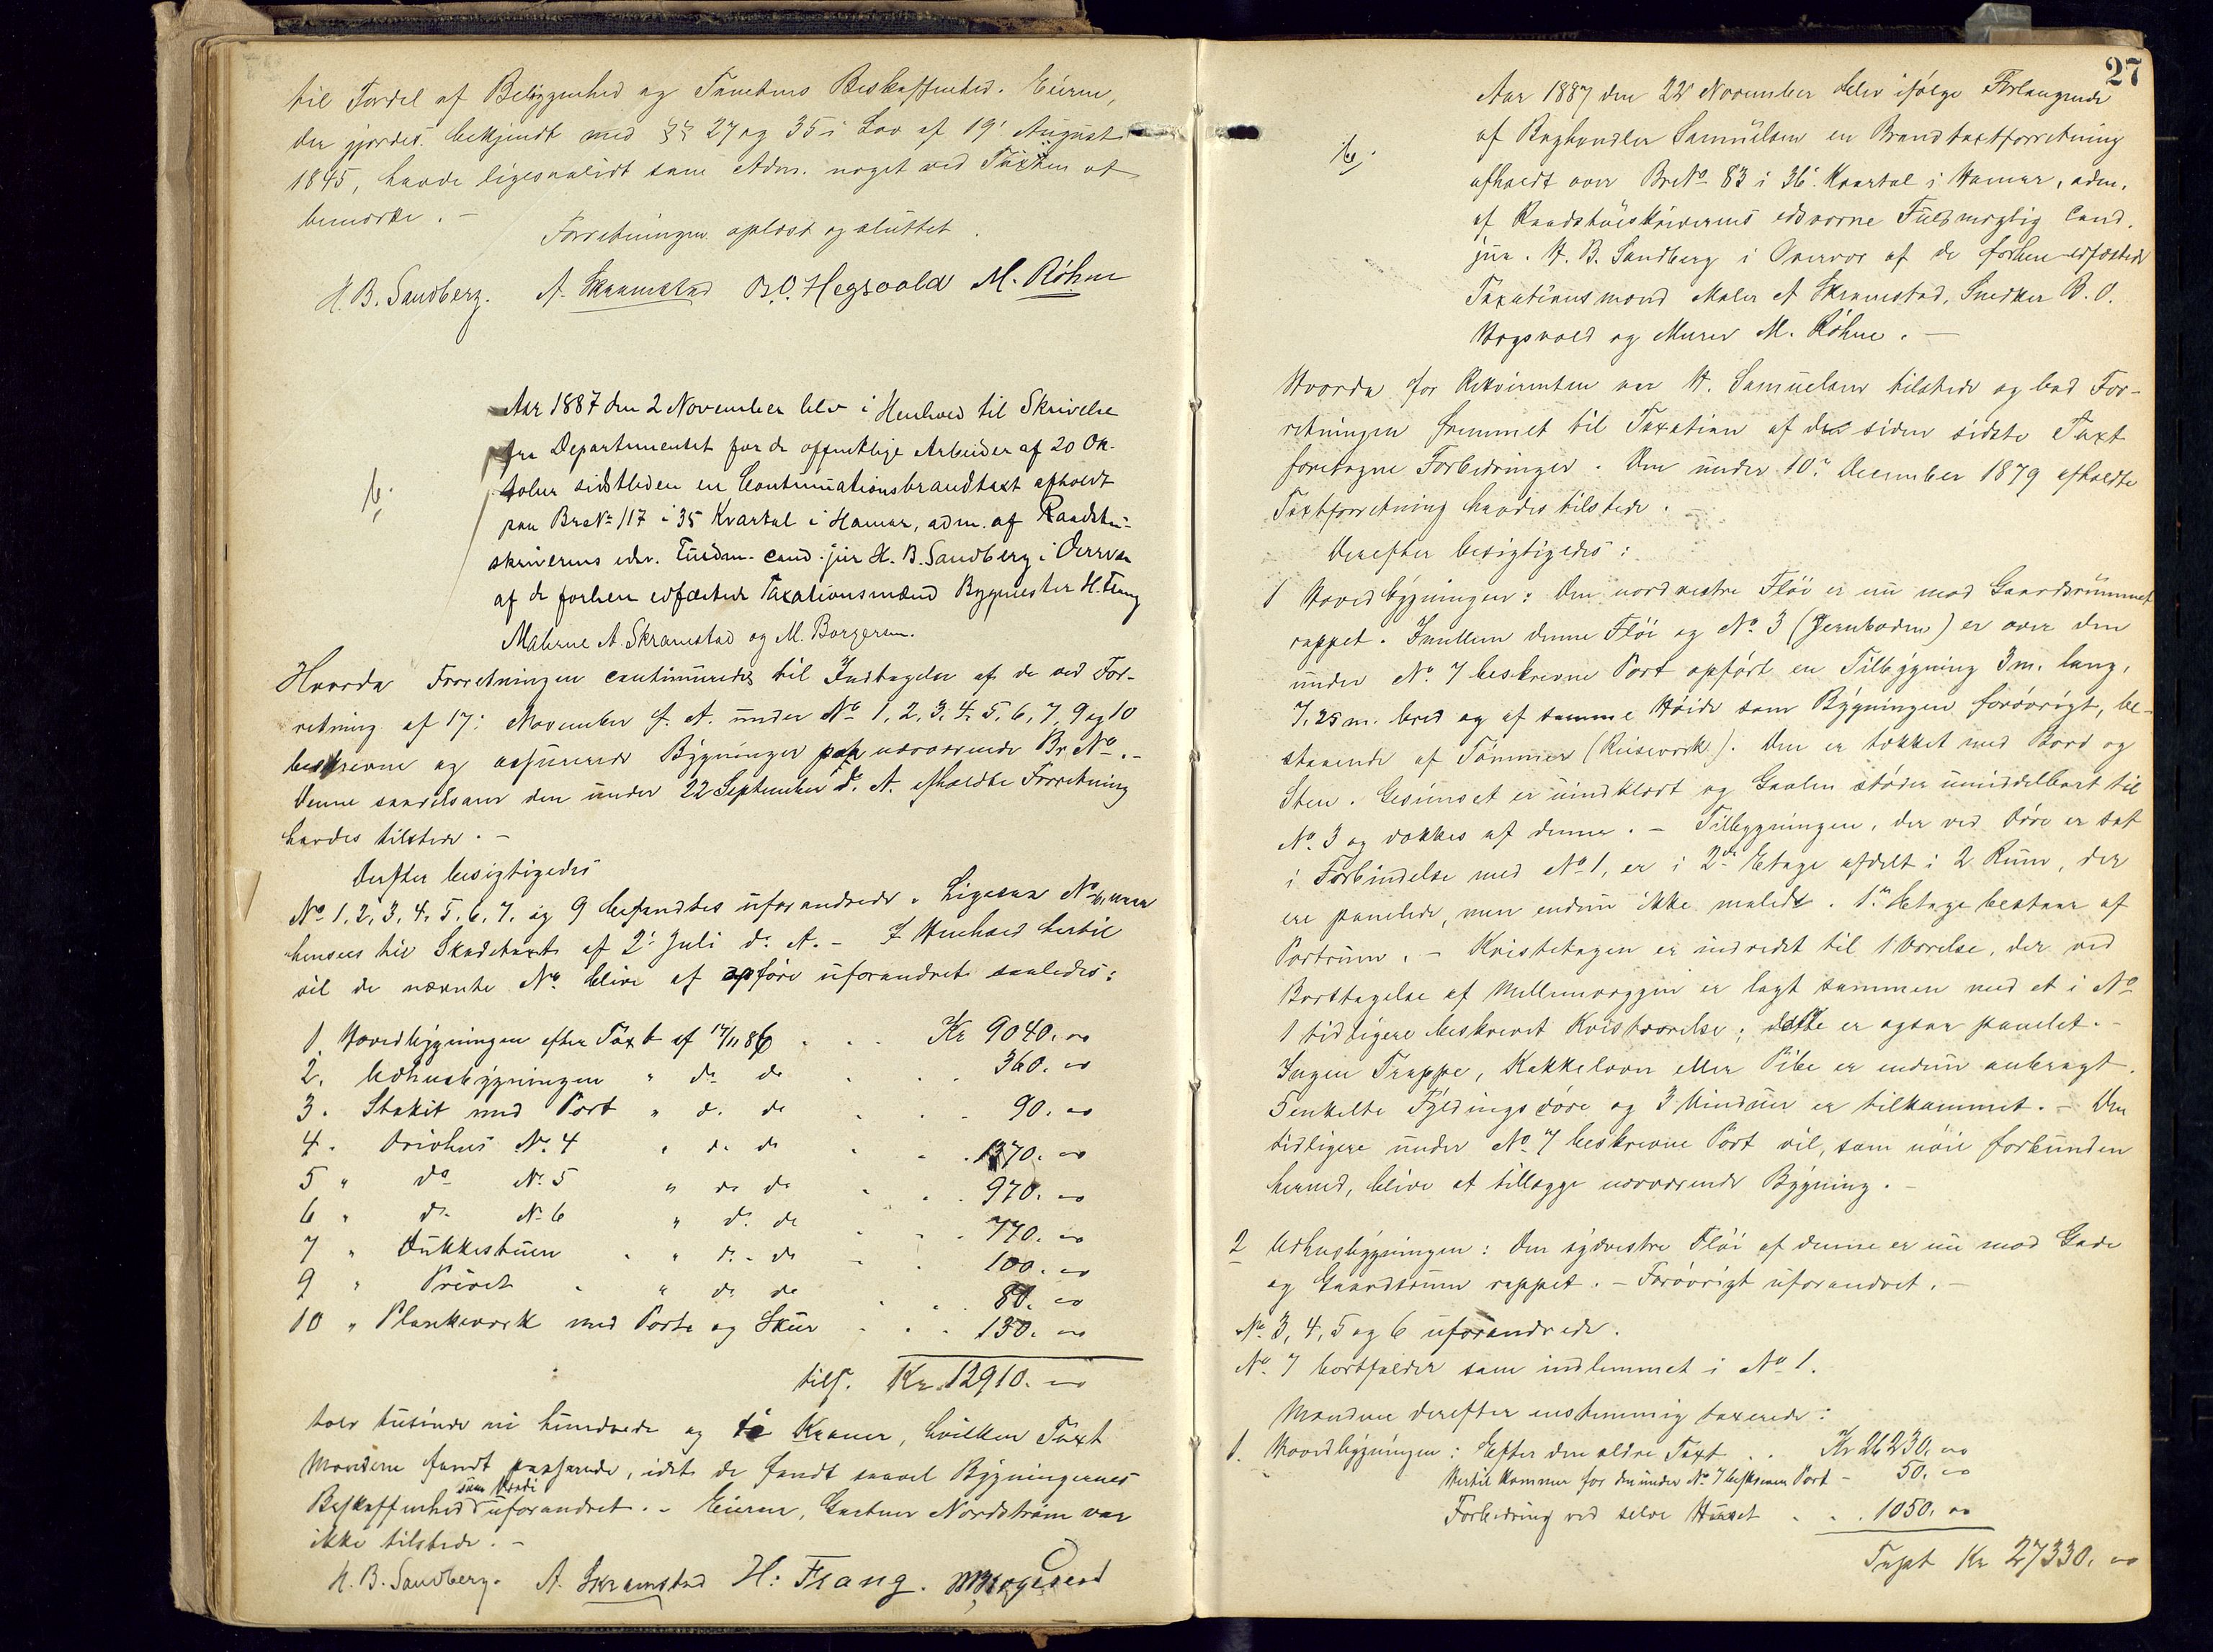 til Fordel af Beliggenhed og Tomtens Beskaffenhed. Eieren,
der gjordes bekjendt med §§ 27 og 35 i Lov af 19' August
1845, havde ligesaalidt som Adm. noget ved Taxten at
bemærke. –
Forretningen oplæst og sluttet.
H. B. Sandberg. A. Skramstad B.O. Hegsvold M. Röhne
Aar 1887 den 2 November blev i Henhold til Skrivelse
fra Departementet for de offentlige Arbeider af 20 Ok-
tober sidstleden en Continuationsbrandtaxt afholdt
paa BrNo 117 i 35 Kvartal i Hamar, adm. af Raadstu-
skriverens edsv. Fuldm. cand. jur H. B. Sandberg i Overvær
af de forhen edfæstede Taxationsmænd Bygmester H. Frang
Malerne A. Skramstad og M. Borgersen.
Hvorda Forretningen continueredes til Indtagelse af de ved For-
retning af 17: November f. A. under No 1, 2, 3, 4, 5, 6, 7, 9 og 10
beskrevne og assurerede Bygninger paa nærværende Br.No. –
Denne saavelsom den under 22 September d. A. afholdte Forretning
havdes tilstede. –
Derefter besigtigedes
No 1, 2, 3, 4, 5, 6, 7, og 9 befandtes uforandrede. Ligesaa No 10,
hensees til Skadetaxt af 2' Juli d. A. – I Henhold hertil
vil de nævnte No blive at opføre uforandret saaledes:
1 Hovedbygningen efter Taxt af 17/11 86 . . . Kr 9040. 00
2. Udhusbygningen " do do . . . 360. 00
3. Stakit med Port " do do . . 90. 00
4. Drivhus No. 4 " do do . . . 1370. 00
5 " do No. 5 " do do . . . 970. 00
6 " do No 6 " do do . . . 770. 00
7 " Dukkestuen . " do do . . 100. 00
9 " Privet . " do do . . . 80. 00
10 " Plankeværk med Port og Skur . . . 130. 00
tils. Kr. 12910. 00
tolv tusinde ni hundrede og ti Kroner, hvilken Taxt
Mændene fandt passende, idet de fandt saavel Bygningernes
som Værdi
Beskaffenhed uforandret. – Eieren, Gartner Nordström var
ikke tilstede. –
H. B. Sandberg. A. Skramstad H. Frang. M Borgersen
27
Aar 1887 den 22' November blev ifølge Forlangende
af Boghandler Samuelsen en Brandtaxtforretning
afholdt over BrNo 83 i 36' Kvartal i Hamar, adm.
af Raadstueskriverens edsvorne Fuldmægtig Cand.
jur. H. B. Sandberg i Overvær af de forhen edfæstede
Taxationsmænd Maler A Skramstad, Snedker B. O.
Hegsvold og Murer M. Röhne. –
Hvorda for Rekvirenten var H. Samuelsen tilstede og bad For-
retningen fremmet til Taxation af de siden sidste Taxt
foretagne Forbedringer. Den under 10' December 1879 afholdte
Taxtforretning havdes tilstede. –
Derefter besigtigedes:
1 Hovedbygningen: Den nordvestre Fløi er nu mod Gaardsrummet
rappet. Imellem denne Fløi og No. 3 (Jernboden) er over den
under No. 7 beskrevne Port opført en Tilbygning 3 m. lang,
7,25 m. bred og af samme Høide som Bygningen forøvrigt, be-
staaende af Tømmer (Reisværk). Den er tækket med Bord og
Sten. Gesimset er uindklædt og Gavlen støder umiddelbart til
No. 3 og dækkes af denne. – Tilbygningen, der ved Døre er sat
i Forbindelse med No 1, er i 2den Etage afdelt i 2 Rum, der
ere panelede, men endnu ikke malede. 1' Etage bestaar af
Portrum. – Kvistetagen er indredet til 1 Værelse, der ved
Borttagelse af Mellemvæggen er lagt sammen med et i No
1 tidligere beskrevet Kvistværelse; dette er ogsaa panelet. –
Ingen Trappe, Kakkelovn eller Pibe er endnu anbragt.
5 enkelte Fyldingsdøre og 3 Vinduer er tilkommet. – Den
tidligere under No. 7 beskrevne Port vil, som nøie forbunden
hermed, blive at tillægge nærværende Bygning. –
2 Udhusbygningen: Den sydvestre Fløi af denne er nu mod Gade
og Gaardsrum rappet. – Forøvrigt uforandret. –
No. 3, 4, 5 og 6 uforandrede.
No. 7 bortfalder som indlemmet i No 1.
Mændene derefter enstemmig taxerede:
1. Hovedbygningen: Efter den ældre Taxt . . Kr 26230. 00
Hertil kommer for den under No. 7 beskrevne Port – 50. 00
Forbedring ved selve Huset . . . 1050. 00
Taxt Kr 27330. 00